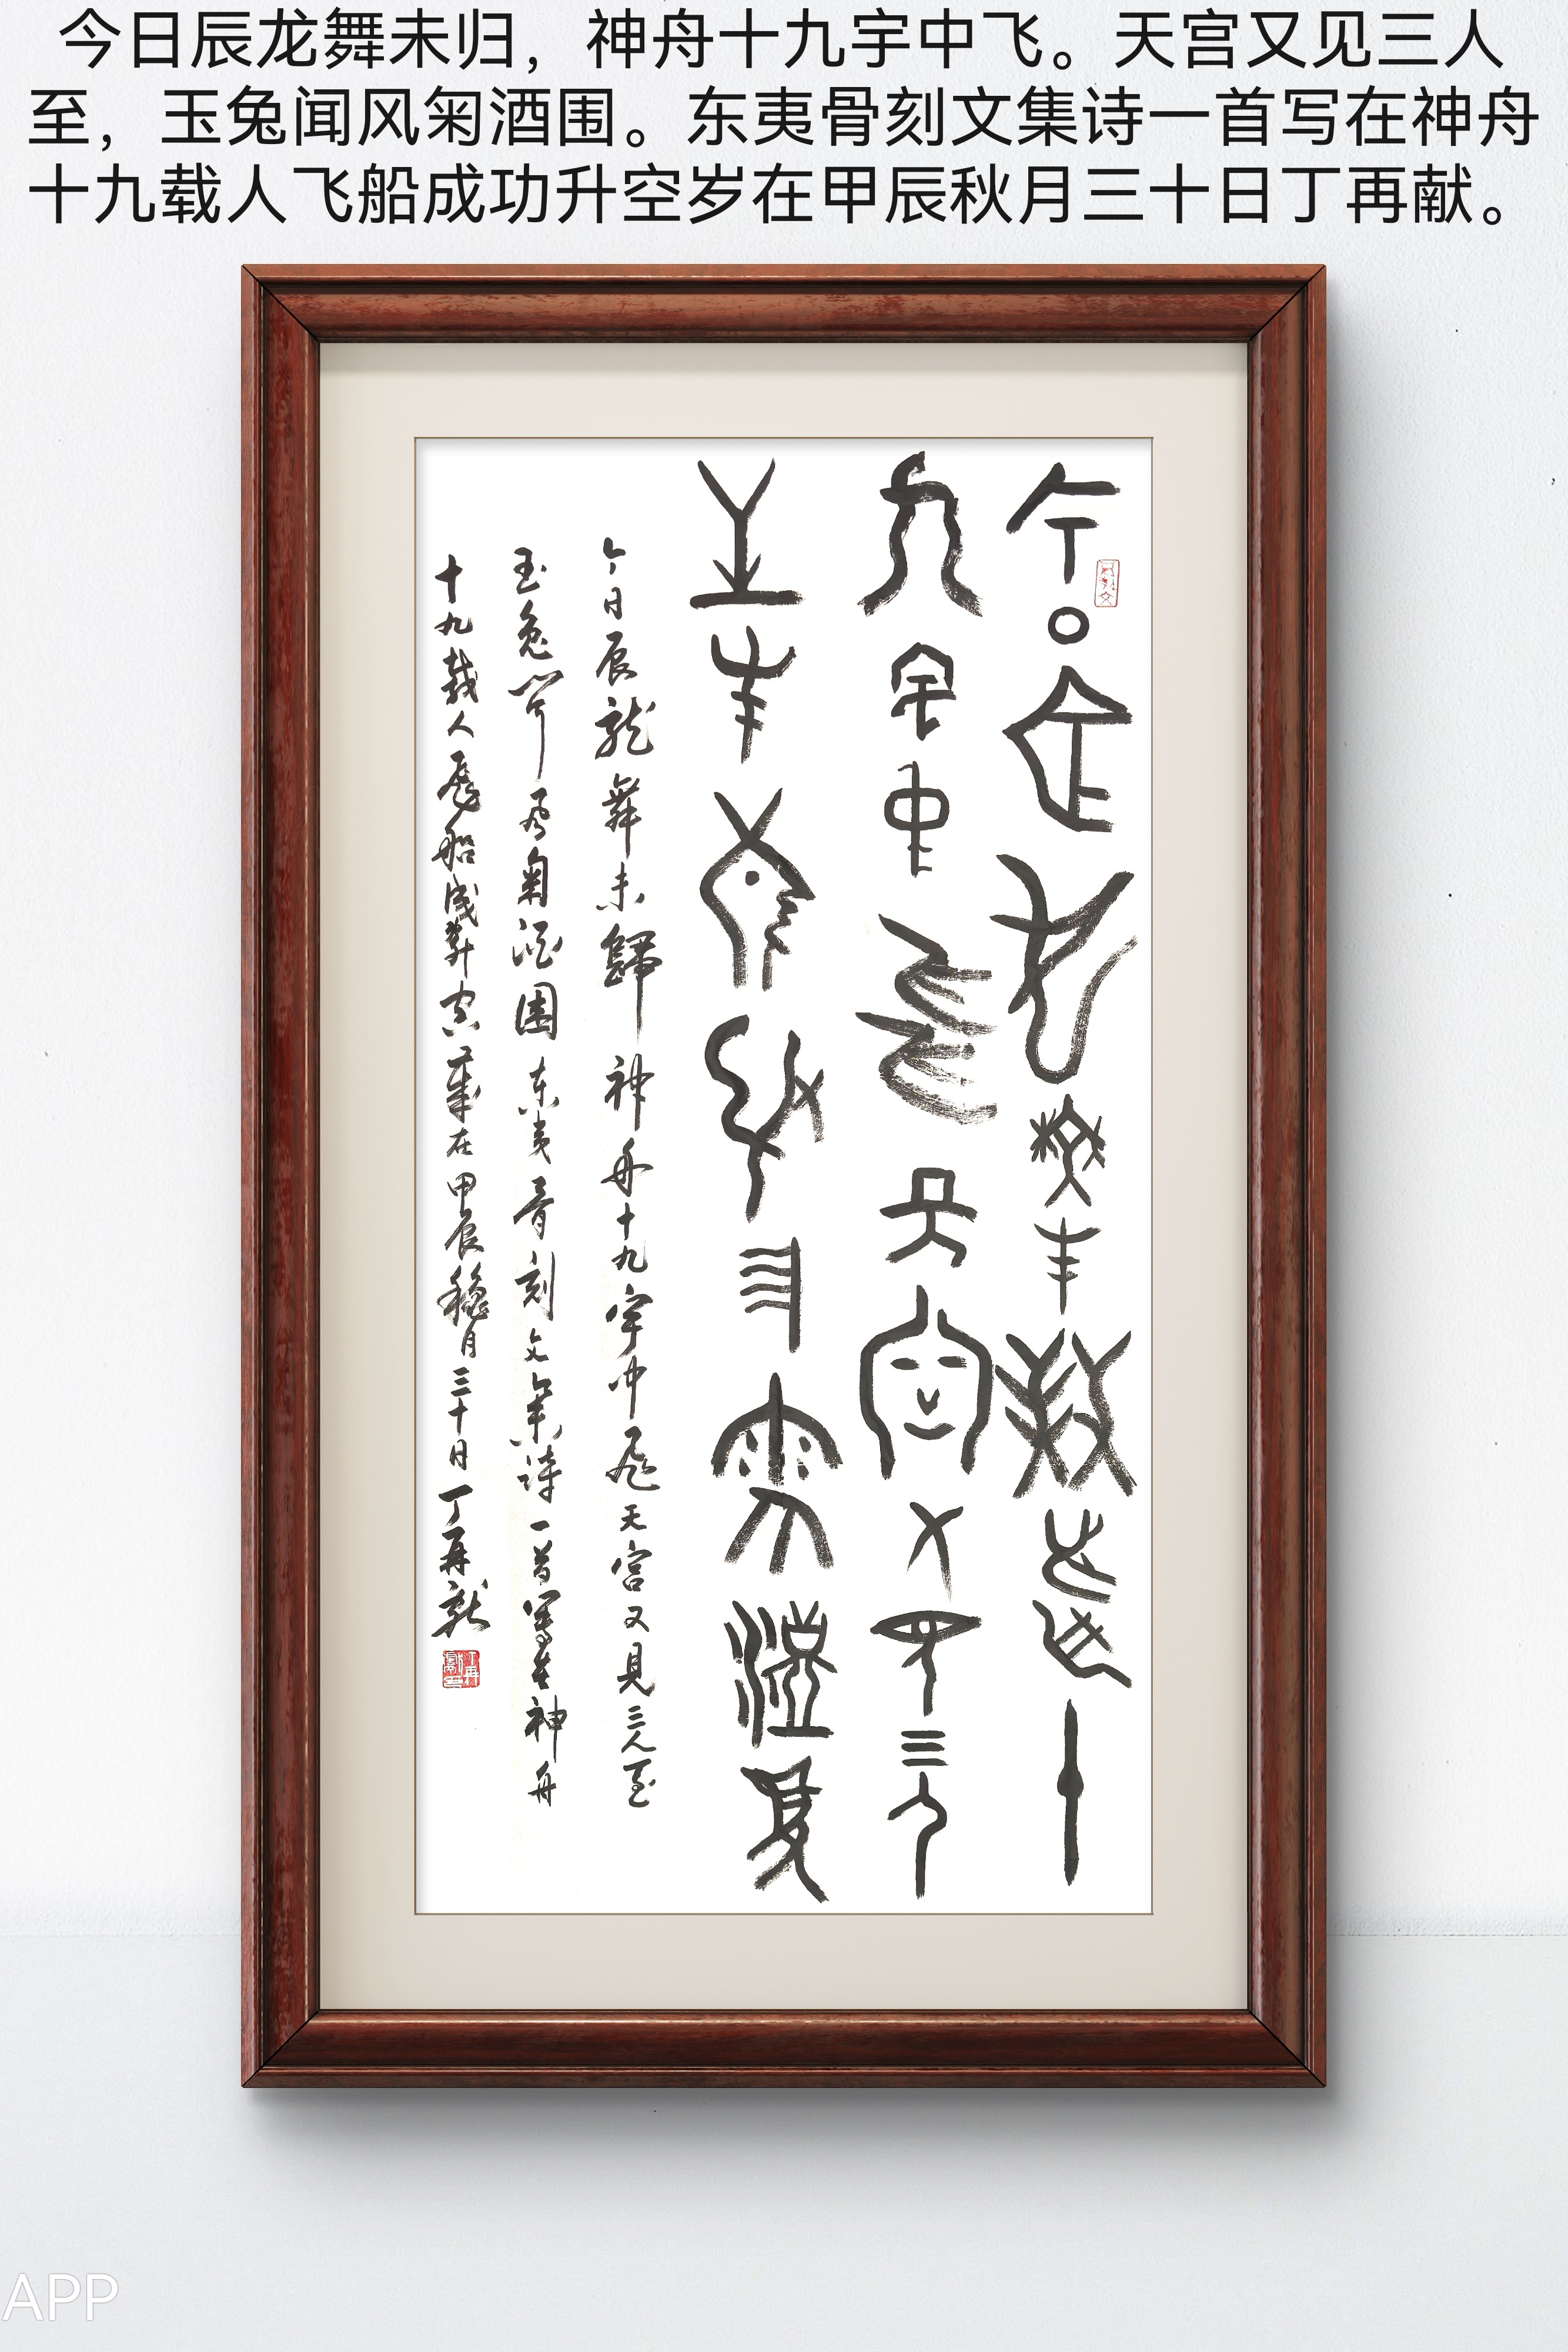 今日辰龙舞未归，神舟十九宇中飞。天宫又见三人
至，玉兔闻风菊酒围。东夷骨刻文集诗一首写在神舟
十九载人飞船成功升空岁在甲辰秋月三十日丁再献。
今日辰龍舞未歸
九宇中飛天宫又見三人
至玉兔
今日辰龍舞未歸神舟十九宇中飛天宫又見三人至
玉兔闻風菊酒围东夷骨刻文集诗一首寫在神舟
十九载人飛船成功升空歲在甲辰穐月三十日丁再献
APP